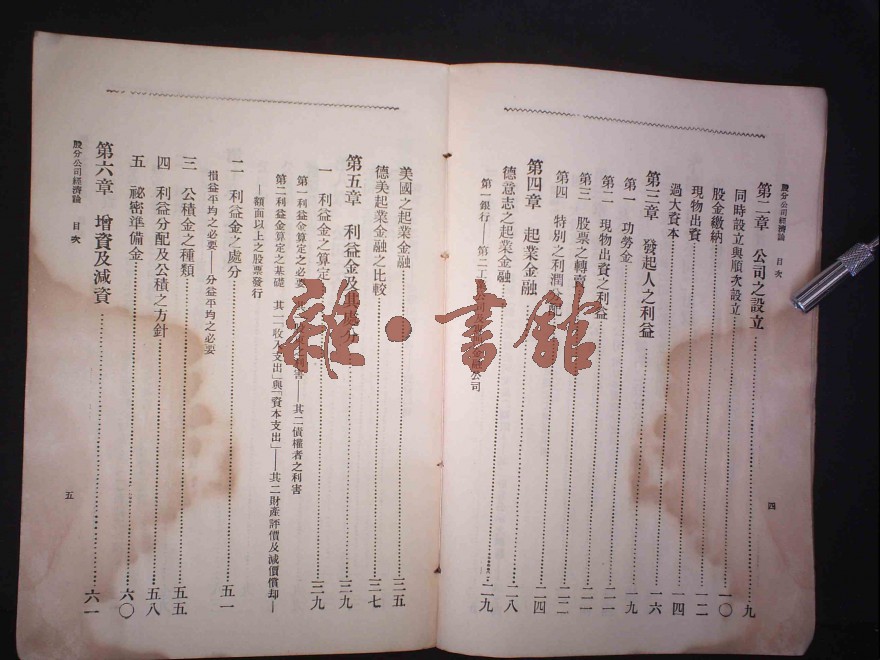 股分公司經濟論 目次
第二章 公司之設立……九
同時設立與順次設立……一〇
股金繳納……一二
現物出資……一四
過大資本……一六
第三章 發起人之利益……一九
第一 功勞金……二一
第二 現物出資之利益……二一
第三 股票之轉賣……二二
第四 特別之利潤分配……二四
第四章 起業金融……二八
德意志之起業金融……二九
第一銀行——第二 公司
四
美國之起業金融……三五
德美起業金融之比較……三七
第五章 利益金及……三九
一 利益金之算定……三九
第一 利益金算定之必要 之利害——其二債權者之利害
第二利益金算定之基礎 其一「收入支出」與「資本支出」——其二財產評價及減價償却——
——額面以上之股票發行
二 利益金之處分……五一
損益平均之必要——分益平均之必要
三 公積金之種類……五五
四 利益分配及公積之方針……五八
五 祕密準備金……六〇
第六章 增資及減資……六一
股分公司經濟論 目次
五
雜·書館